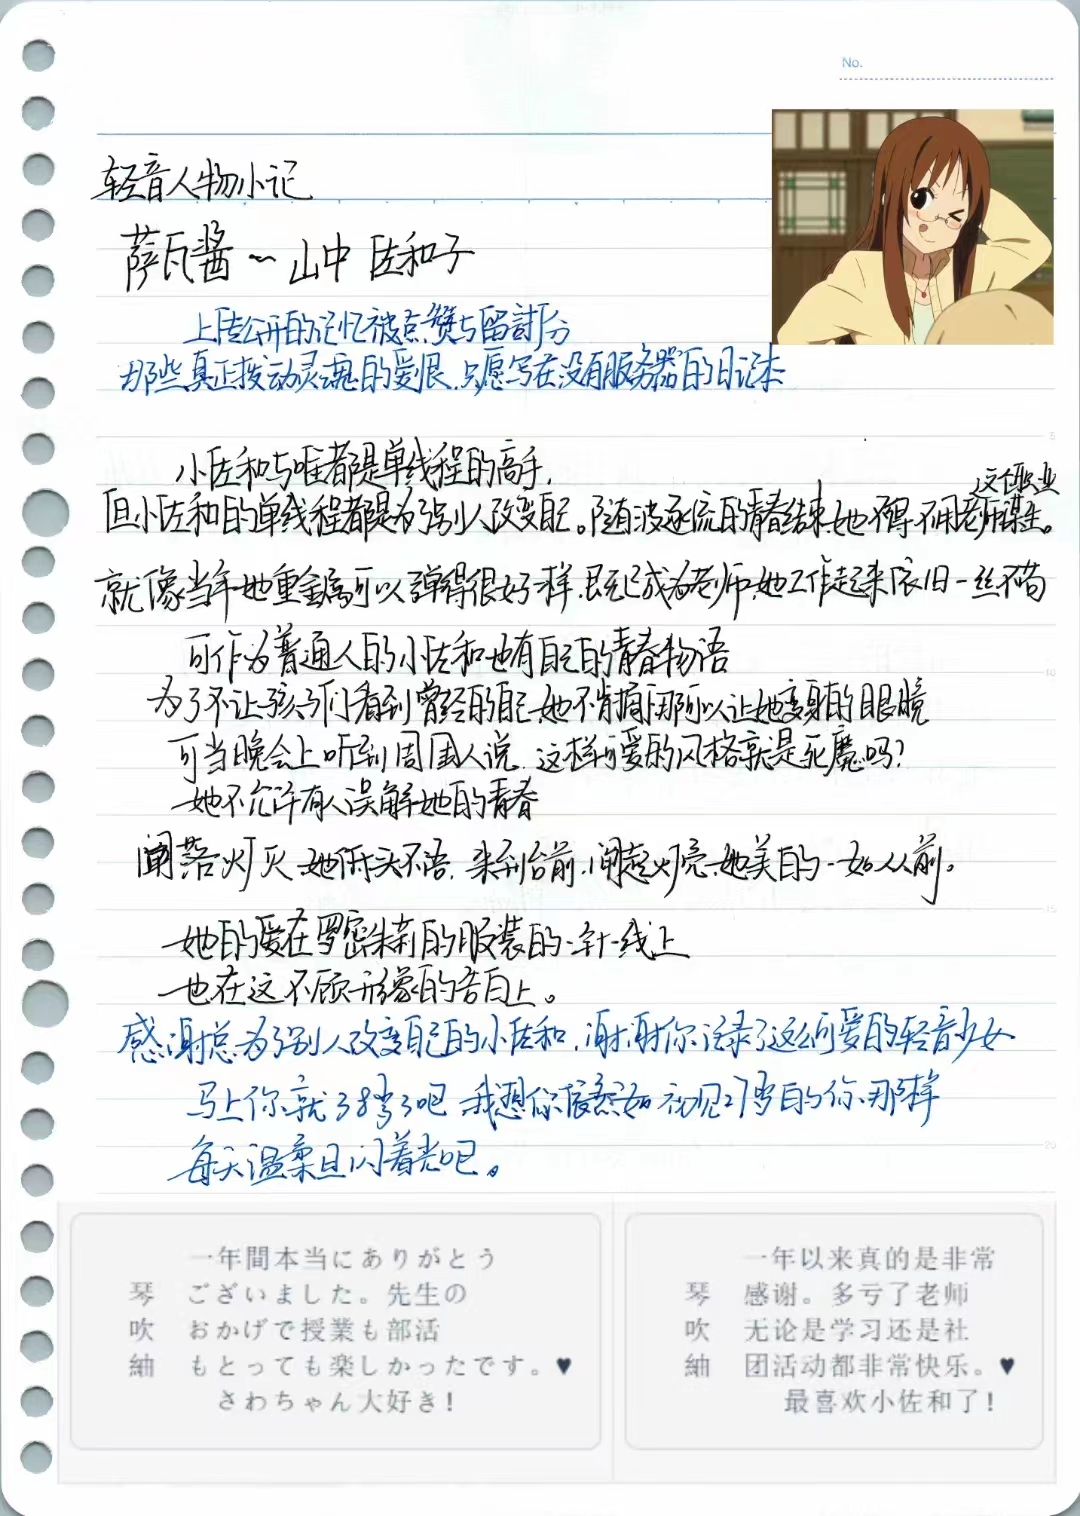 No.
轻音人物小记
萨瓦酱～山中佐和子
上传公开的记忆被点赞与留言瓜分
那些真正拨动灵魂的爱恨，只愿写在没有服务器的日记本
小佐和与唯都是单线程的高手，
这个职业
但小佐和的单线程都是为了别人改变自己。随波逐流的青春结束，她不得不用老师谋生。
就像当年她重金属可以弹得很好一样，既已成为老师，她工作起来依旧一丝不苟
可作为普通人的小佐和也有自己的青春物语
为了不让孩子们看到曾经的自己，她不肯摘下那可以让她变身的眼镜
可当晚会上听到周围人说，这样可爱的风格就是死魔吗？
她不允许有人误解她的青春
闸落灯灭，她低头不语，来到台前，闸起灯亮，她美的一如从前。
她的爱在罗密朱莉的服装的一针一线上
也在这不顾形象的告白上。
感谢总为了别人改变自己的小佐和，谢谢你记录了这么可爱的轻音少女
马上你就38岁了吧 我想你依然如初见27岁的你那样
每天温柔且闪着光吧。
一年間本当にありがとう
ございました。先生の
おかげで授業も部活
もとっても楽しかったです。♥
さわちゃん大好き！
琴吹紬
一年以来真的是非常
感谢。多亏了老师
无论是学习还是社
团活动都非常快乐。♥
最喜欢小佐和了！
琴吹紬